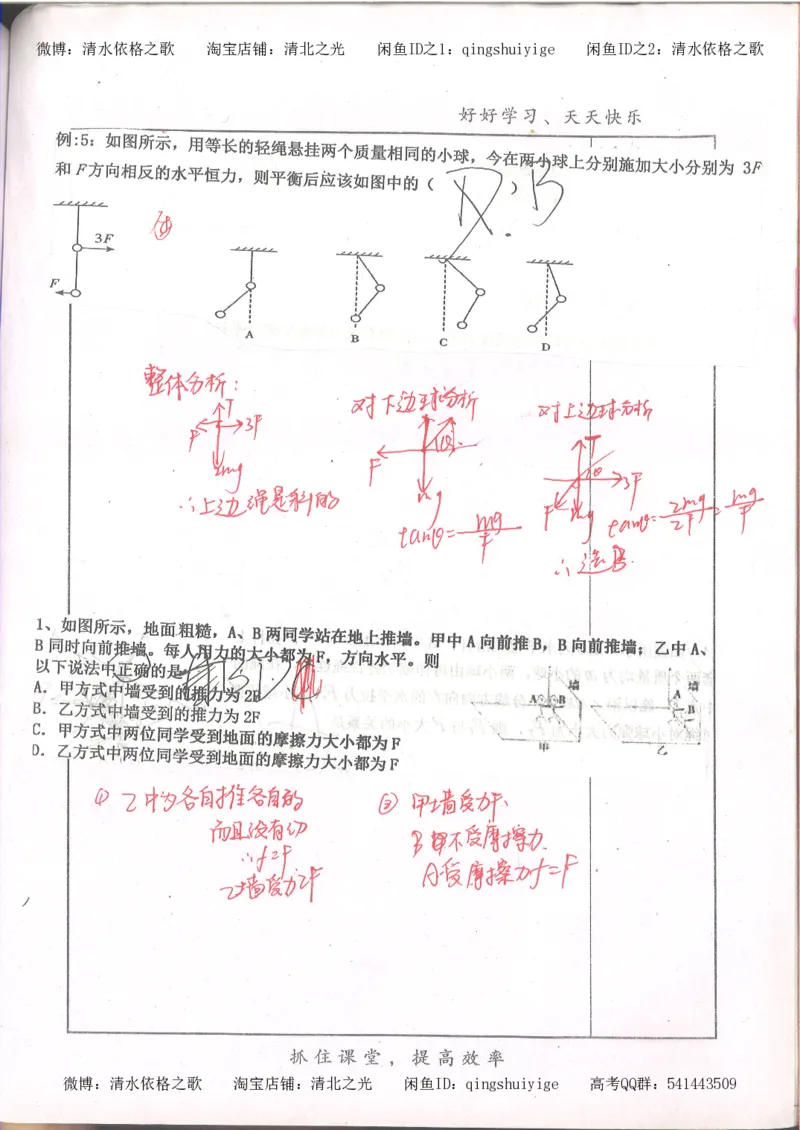 微博：清水依格之歌 淘宝店铺：清北之光 闲鱼ID之1：qingshuiyige 闲鱼ID之2：清水依格之歌
好好学习、天天快乐
例:5：如图所示，用等长的轻绳悬挂两个质量相同的小球，今在两小球上分别施加大小分别为 3F
和 F方向相反的水平恒力，则平衡后应该如图中的（ ）B
3F
F
A B C D
整体分析：
T
F 3F
2mg
∴上边绳是斜的
对下边球分析
θ
F
mg
tanθ=mg/F
对上边球分析
T
θ
F 3F
mg
tanθ=2mg/2F=mg/F
∴选B
1、如图所示，地面粗糙，A、B两同学站在地上推墙。甲中A向前推B，B向前推墙；乙中A、
B同时向前推墙。每人用力的大小都为F，方向水平。则
以下说法中正确的是 BD
A．甲方式中墙受到的推力为2F
B．乙方式中墙受到的推力为2F
C．甲方式中两位同学受到地面的摩擦力大小都为F
D．乙方式中两位同学受到地面的摩擦力大小都为F
墙
A B
甲
墙
A
B
乙
① 乙中为各自推各自的
而且没有动
乙墙受力2F
② 甲墙受力F、
B 不受摩擦力
A受摩擦力f=F
抓住课堂，提高效率
微博：清水依格之歌 淘宝店铺：清北之光 闲鱼ID：qingshuiyige 高考QQ群：541443509